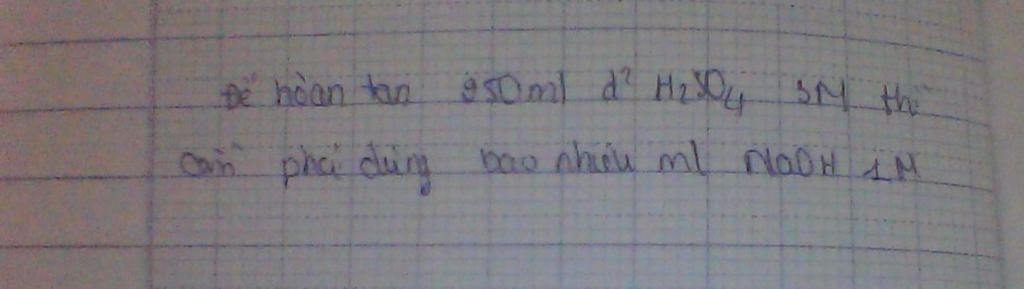 Để hoàn tan 250ml d² H₂SO₄ 3M thì
cần phải dùng bao nhiêu ml NaOH 1M